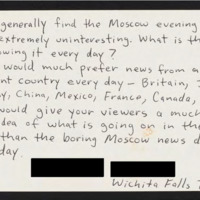 generally find the Moscow evening
extremely uninteresting. What is th
owing it every day?
would much prefer news from a
nt country every day - Britain,
y, China, Mexico, France, Canada,
would give your viewers a much
dea of what is going on in the
than the boring Moscow news d
day.
Wichita Falls